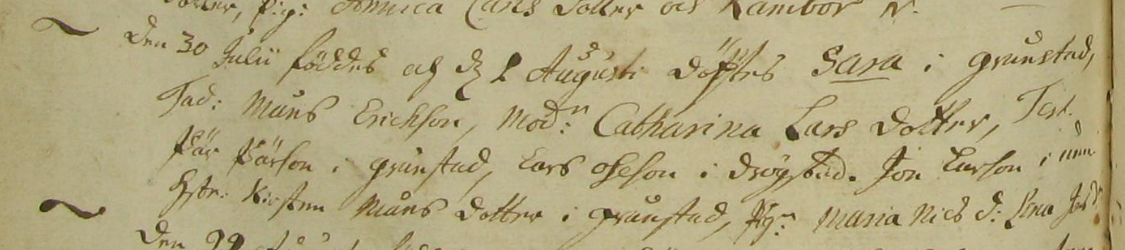 dotter, pig: Annica Carls dotter och Rambor
Den 30 Julii föddes och d. 2 Augusti döptes Sara i grunstad,
Fad: Måns Erichson, Mod:n Catharina Lars dotter, Test.
Pär Pärson i grunstad, Lars Olson i drögstad. Jon Larson i
Hstr: Kirsten Måns dotter i grunstad, Pig:r Maria Nils d: Lena
Den